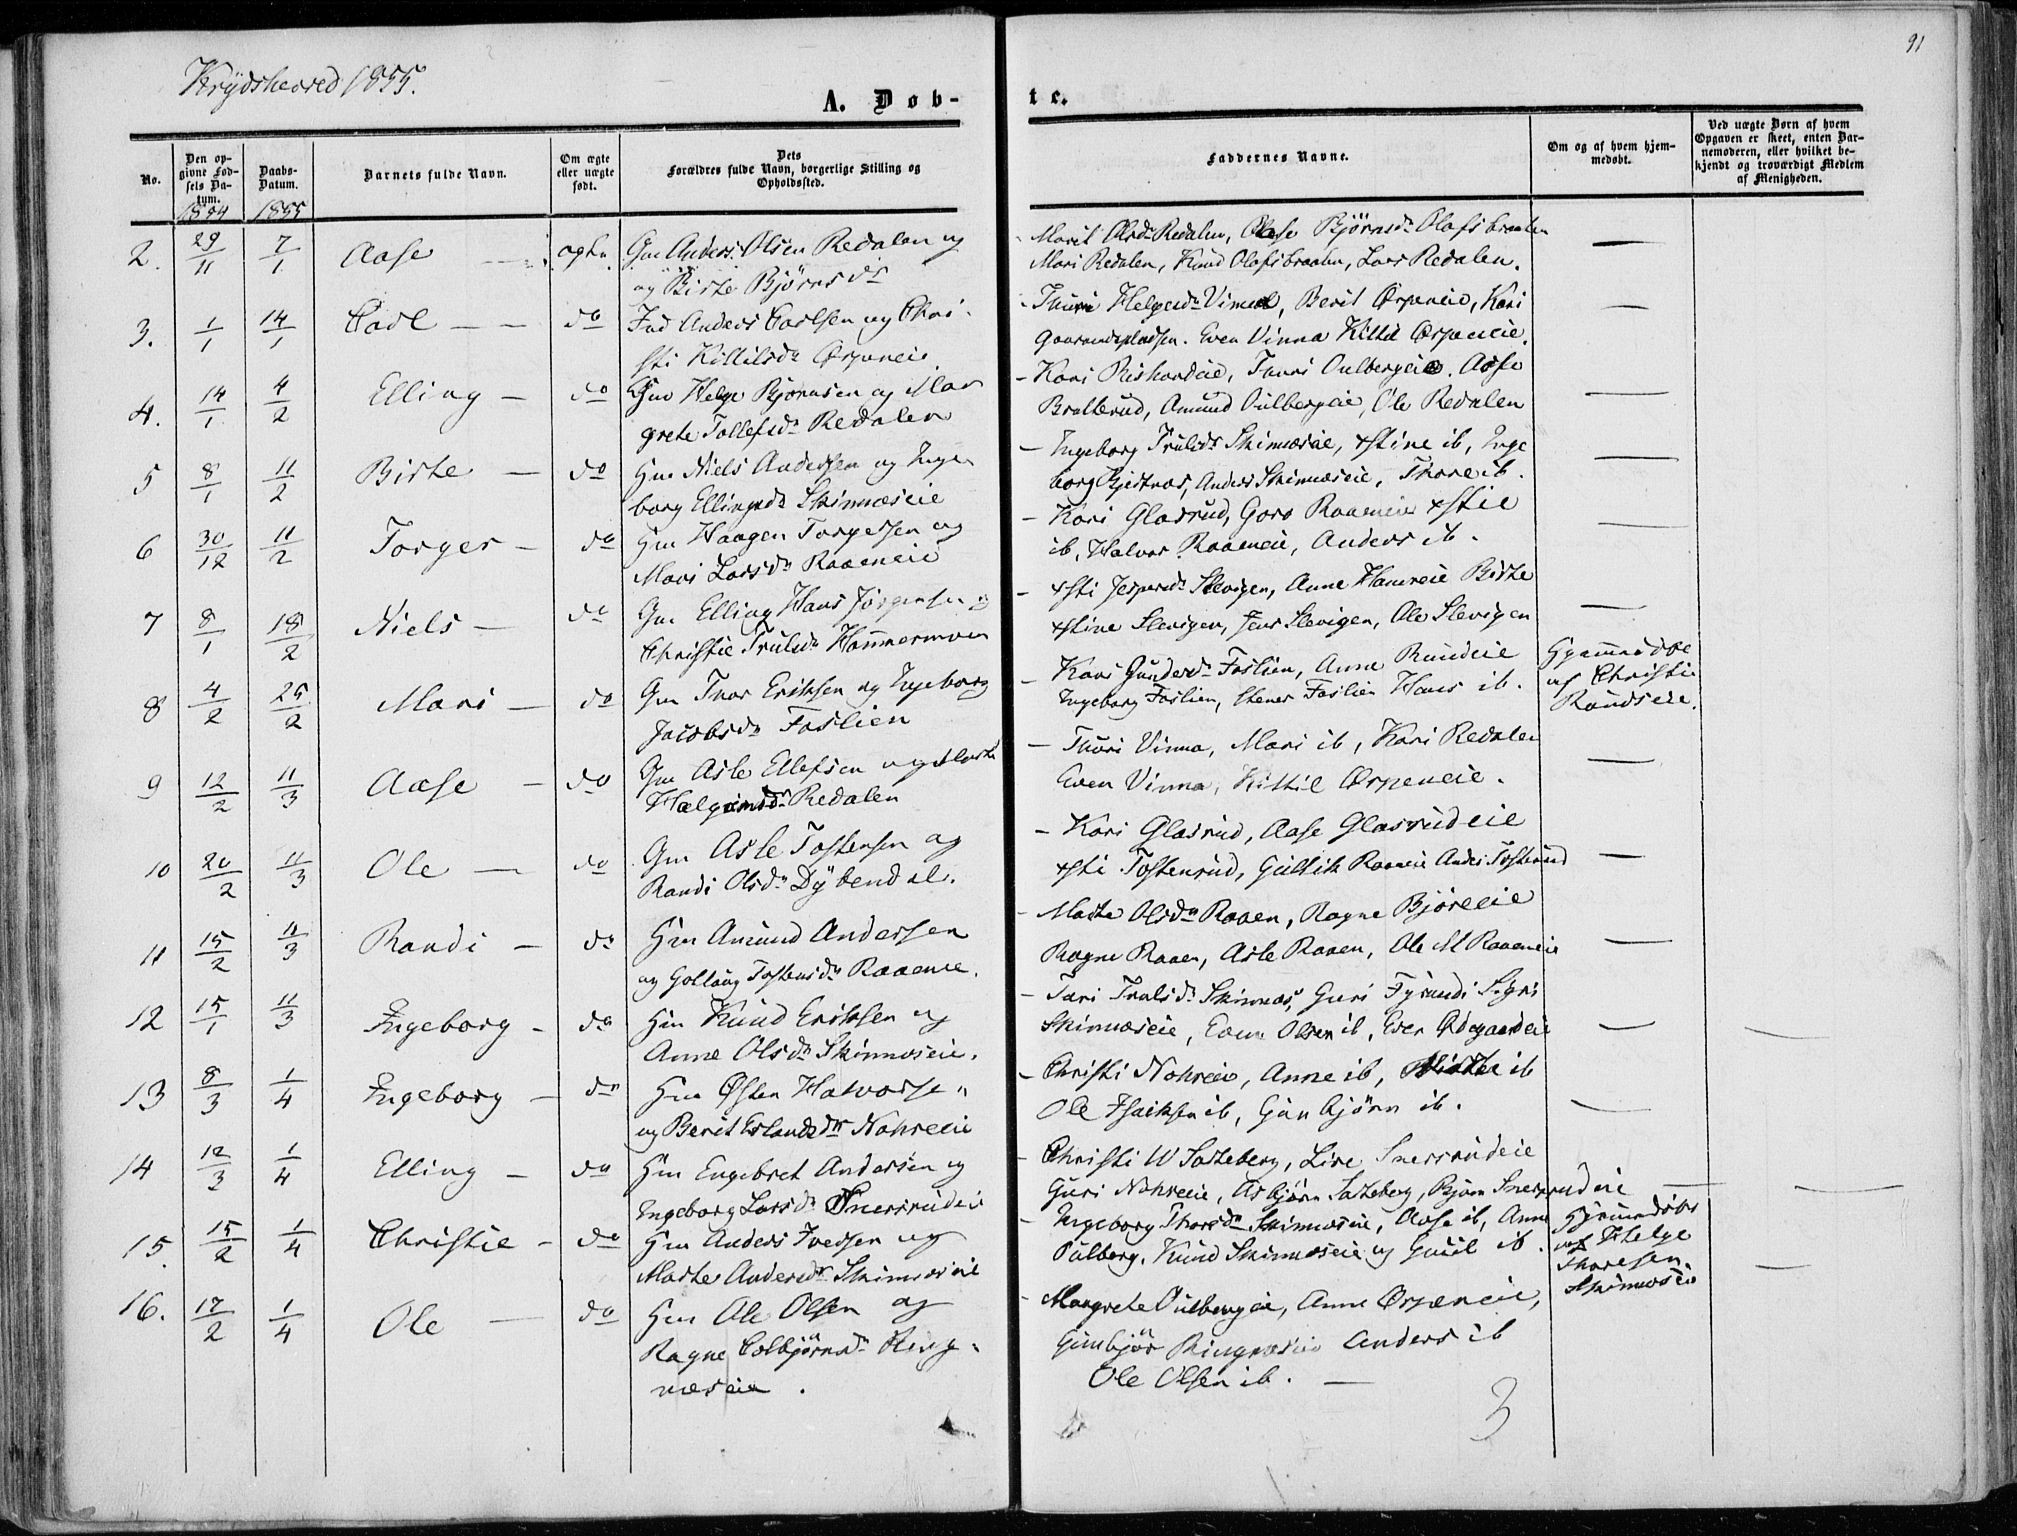 91
Krydsherred 1855.
A. Døb-
te.
No.
Den opgivne Fødsels Datum.
Daabs-Datum.
Barnets fulde Navn.
Om ægte eller uægte født.
Dets Forældres fulde Navn, borgerlige Stilling og Opholdssted.
Faddernes Navne.
Om og af hvem hjemmedøbt.
Ved uægte Børn af hvem Opgaven er skeet, enten Barnemoderen, eller hvilket bekjendt og troværdigt Medlem af Menigheden.
1854 1855
2. 29/11 7/1 Aase — ægte Gm Anders Olsen Redalen og
og Birte Bjørnsdr
Marit Olsdr Redalen, Aase Bjørnsdr Olafsbraaten
Mari Redalen, Knud Olafsbraaten, Lars Redalen. —
3. 1/1 14/1 Carl — do Anders Carlsen og Chri-
sti Kittilsdr Ørpeneie
Thuri Helgesdr Vinna, Berit Ørpeneie, Kari
Even Vinna Kittil Ørpeneie. —
4. 14/1 4/2 Elling — do Gm Helge Bjørnsen og Mar
grete Tollefsdr Redalen
Kari Riskardeie, Thuri Oulbergeie. Aase
Bratterud, Amund Oulbergeie, Ole Redalen —
5 8/1 11/2 Birte — do Gm Niels Andersen og Inge
borg Ellingsdr Skinnæseie
Ingeborg Trulsdr Skinnæseie, Xstine ib, Inge
borg Anders Skinnæseie, Thore ib. —
6 30/12 11/2 Torger — do Gm Haagen Torgersen og
Mari Larsdr Raaeneie
Kari Glasrud, Goro Raaeneie Xstie
ib, Halvor Raaeneie, Anders ib. —
7 8/1 18/2 Niels — do Gm Elling Hans Jørgensen og
Christie Trulsdr Hammermoen
Xsti Jespersdr Slevigen, Anne Birte
Xstine Slevigen, Jens Slevigen, Ole Slevigen —
8 4/2 25/2 Mari — do Gm Ivar Eriksen og Ingeborg
Jacobsdr Foslien
Kari Gundersdr Foslien, Anne
Ingeborg Foslien, Stener Foslien Hans ib.
Hjemmedøbt
af Christie
9 12/2 11/3 Aase — do Gm Asle Ellefsen og Marte
Redalen
Thuri Vinna, Mari ib, Kari Redalen
Even Vinna, Kittil Ørpeneie. —
10 20/2 11/3 Ole — do Gm Asle Tostensen og
Randi Olsdr Dybendal.
Kari Glasrud, Aase Glasrudeie
Xsti Tostenrud, Gullik Raaeneie Anders Tostenrud —
11 15/2 11/3 Randi — do Gm Amund Andersen
og Gollaug Tostensdr Raaeneie.
Marte Olsdr Raaen, Ragne Bjøreeie
Ragne Raaen, Asle Raaen, Ole M Raaeneie —
12 15/1 11/3 Ingeborg — do Gm Knud Eriksen og
Anne Olsdr Skinnæseie.
Trulsdr Skinnæs, Guri Sigri
Skinnæseie, Even Olsen ib, Even Ødegaardeie —
13 8/3 1/4 Ingeborg — do Gm Østen Halvorsen
og Berit Erlandsdtr Nohreeie
Christi Nohreeie, Anne ib, ib
Ole ib, Gunbjørn ib. —
14 12/3 1/4 Elling — do Gm Engebret Andersen og
Ingeborg Larsdr Snersrudeie
Christi Sateberg, Live Snersrudeie
Guri Nohreeie, Asbjørn Sateberg, Bjørn Snersrudeie —
15. 15/2 1/4 Christie — do Gm Anders Iversen og
Marte Andersdr Skinnæseie
Ingeborg Thorsdr Skinnæseie, Aase ib, Anne
Oulberg. Knud Skinnæseie og ib.
Hjemmedøbt
af Helge
Thoresen
Skinnæseie
16. 17/2 1/4 Ole — do Gm Ole Olsen og
Ragne Colbjørnsdr Ring-
næseie.
Margrete Oulbergeie, Anne Ørpeneie,
Gunbjør Ringnæseie Anders ib
Ole Olsen ib. —
3